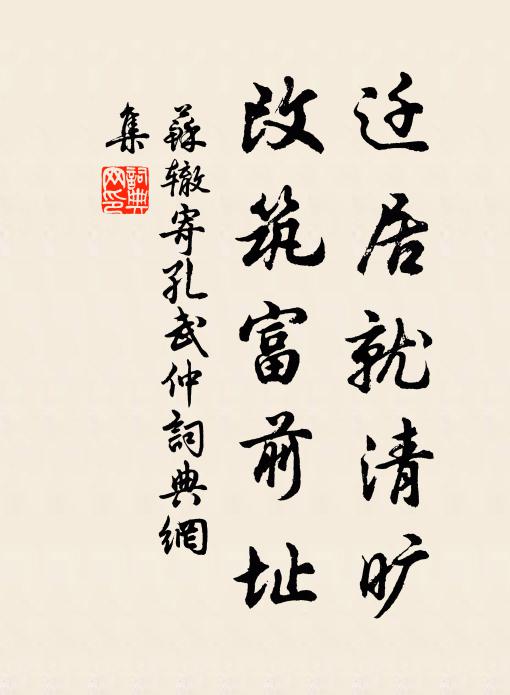 迁居就清旷
改筑富前址
蘇辙寄孔武仲詞典網
集
詞典
网印